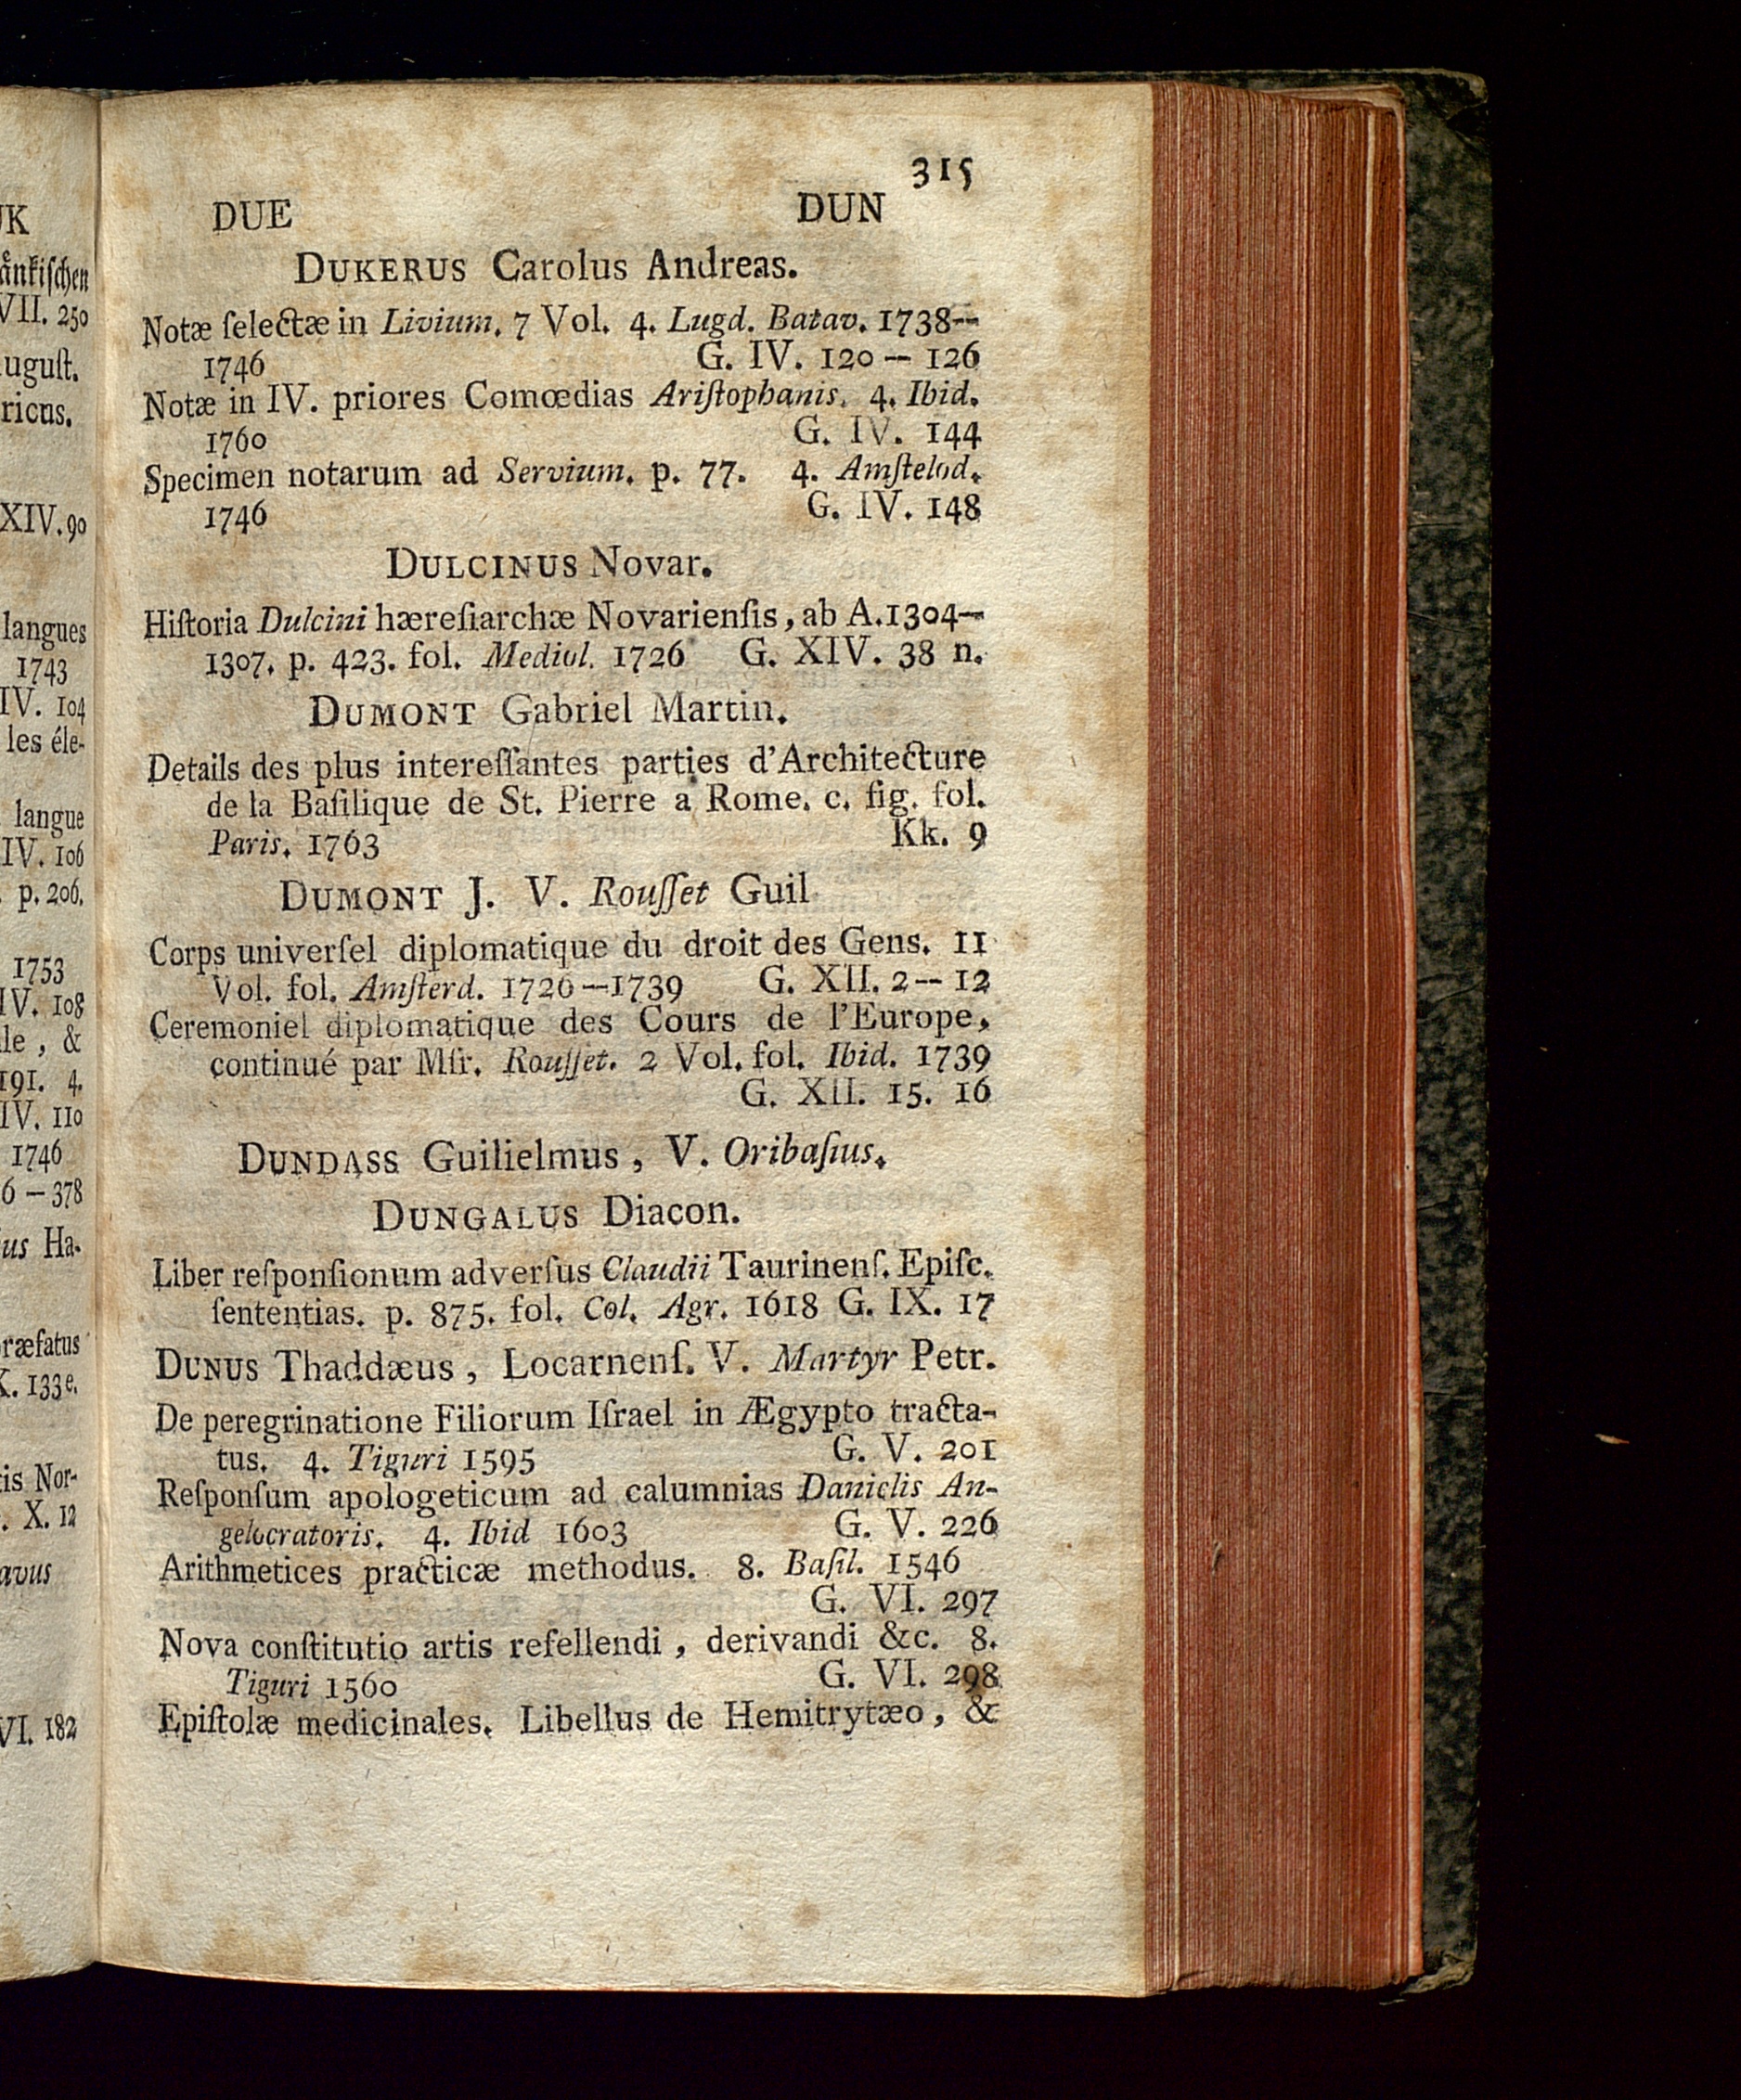 315
DUE DUN
DUKERUS Carolus Andreas.
Notæ ſelectæ in Livium. 7 Vol. 4. Lugd. Batav. 1738—
1746 G. IV. 120 — 126
Notæ in IV. priores Comœdias Ariſtophanis. 4. Ibid.
1760 G. IV. 144
Specimen notarum ad Servium. p. 77. 4. Amſtelod.
1746 G. IV. 148
DULCINUS Novar.
Hiſtoria Dulcini hæreſiarchæ Novarienſis, ab A. 1304—
1307. p. 423. fol. Mediol. 1726 G. XIV. 38 n.
DUMONT Gabriel Martin.
Details des plus intereſſantes parties d'Architecture
de la Baſilique de St. Pierre a Rome. c. fig. fol.
Paris. 1763 Kk. 9
DUMONT J. V. Rouſſet Guil
Corps univerſel diplomatique du droit des Gens. 11
Vol. fol. Amſterd. 1726—1739 G. XII. 2 — 12
Ceremoniel diplomatique des Cours de l'Europe,
continué par Mſr. Rouſſet. 2 Vol. fol. Ibid. 1739
G. XII. 15. 16
DUNDASS Guilielmus, V. Oribaſius.
DUNGALUS Diacon.
Liber reſponſionum adverſus Claudii Taurinenſ. Epiſc.
ſententias. p. 875. fol. Col. Agr. 1618 G. IX. 17
DUNUS Thaddæus, Locarnenſ. V. Martyr Petr.
De peregrinatione Filiorum Iſrael in Ægypto tracta-
tus. 4. Tiguri 1595 G. V. 201
Reſponſum apologeticum ad calumnias Danielis An-
gelocratoris. 4. Ibid 1603 G. V. 226
Arithmetices practicæ methodus. 8. Baſil. 1546
G. VI. 297
Nova conſtitutio artis refellendi, derivandi &c. 8.
Tiguri 1560 G. VI. 298
Epiſtolæ medicinales. Libellus de Hemitrytæo, &
UK
änkiſchen
VII. 250
uguſt.
ricus.
XIV. 90
langues
1743
IV. 104
les éle-
langue
IV. 106
p. 206.
1753
IV. 108
lle, &
191. 4.
IV. 110
1746
6 — 378
us Ha-
ræfatus
X. 133 e.
tis Nor-
. X. 12
avus
VI. 182